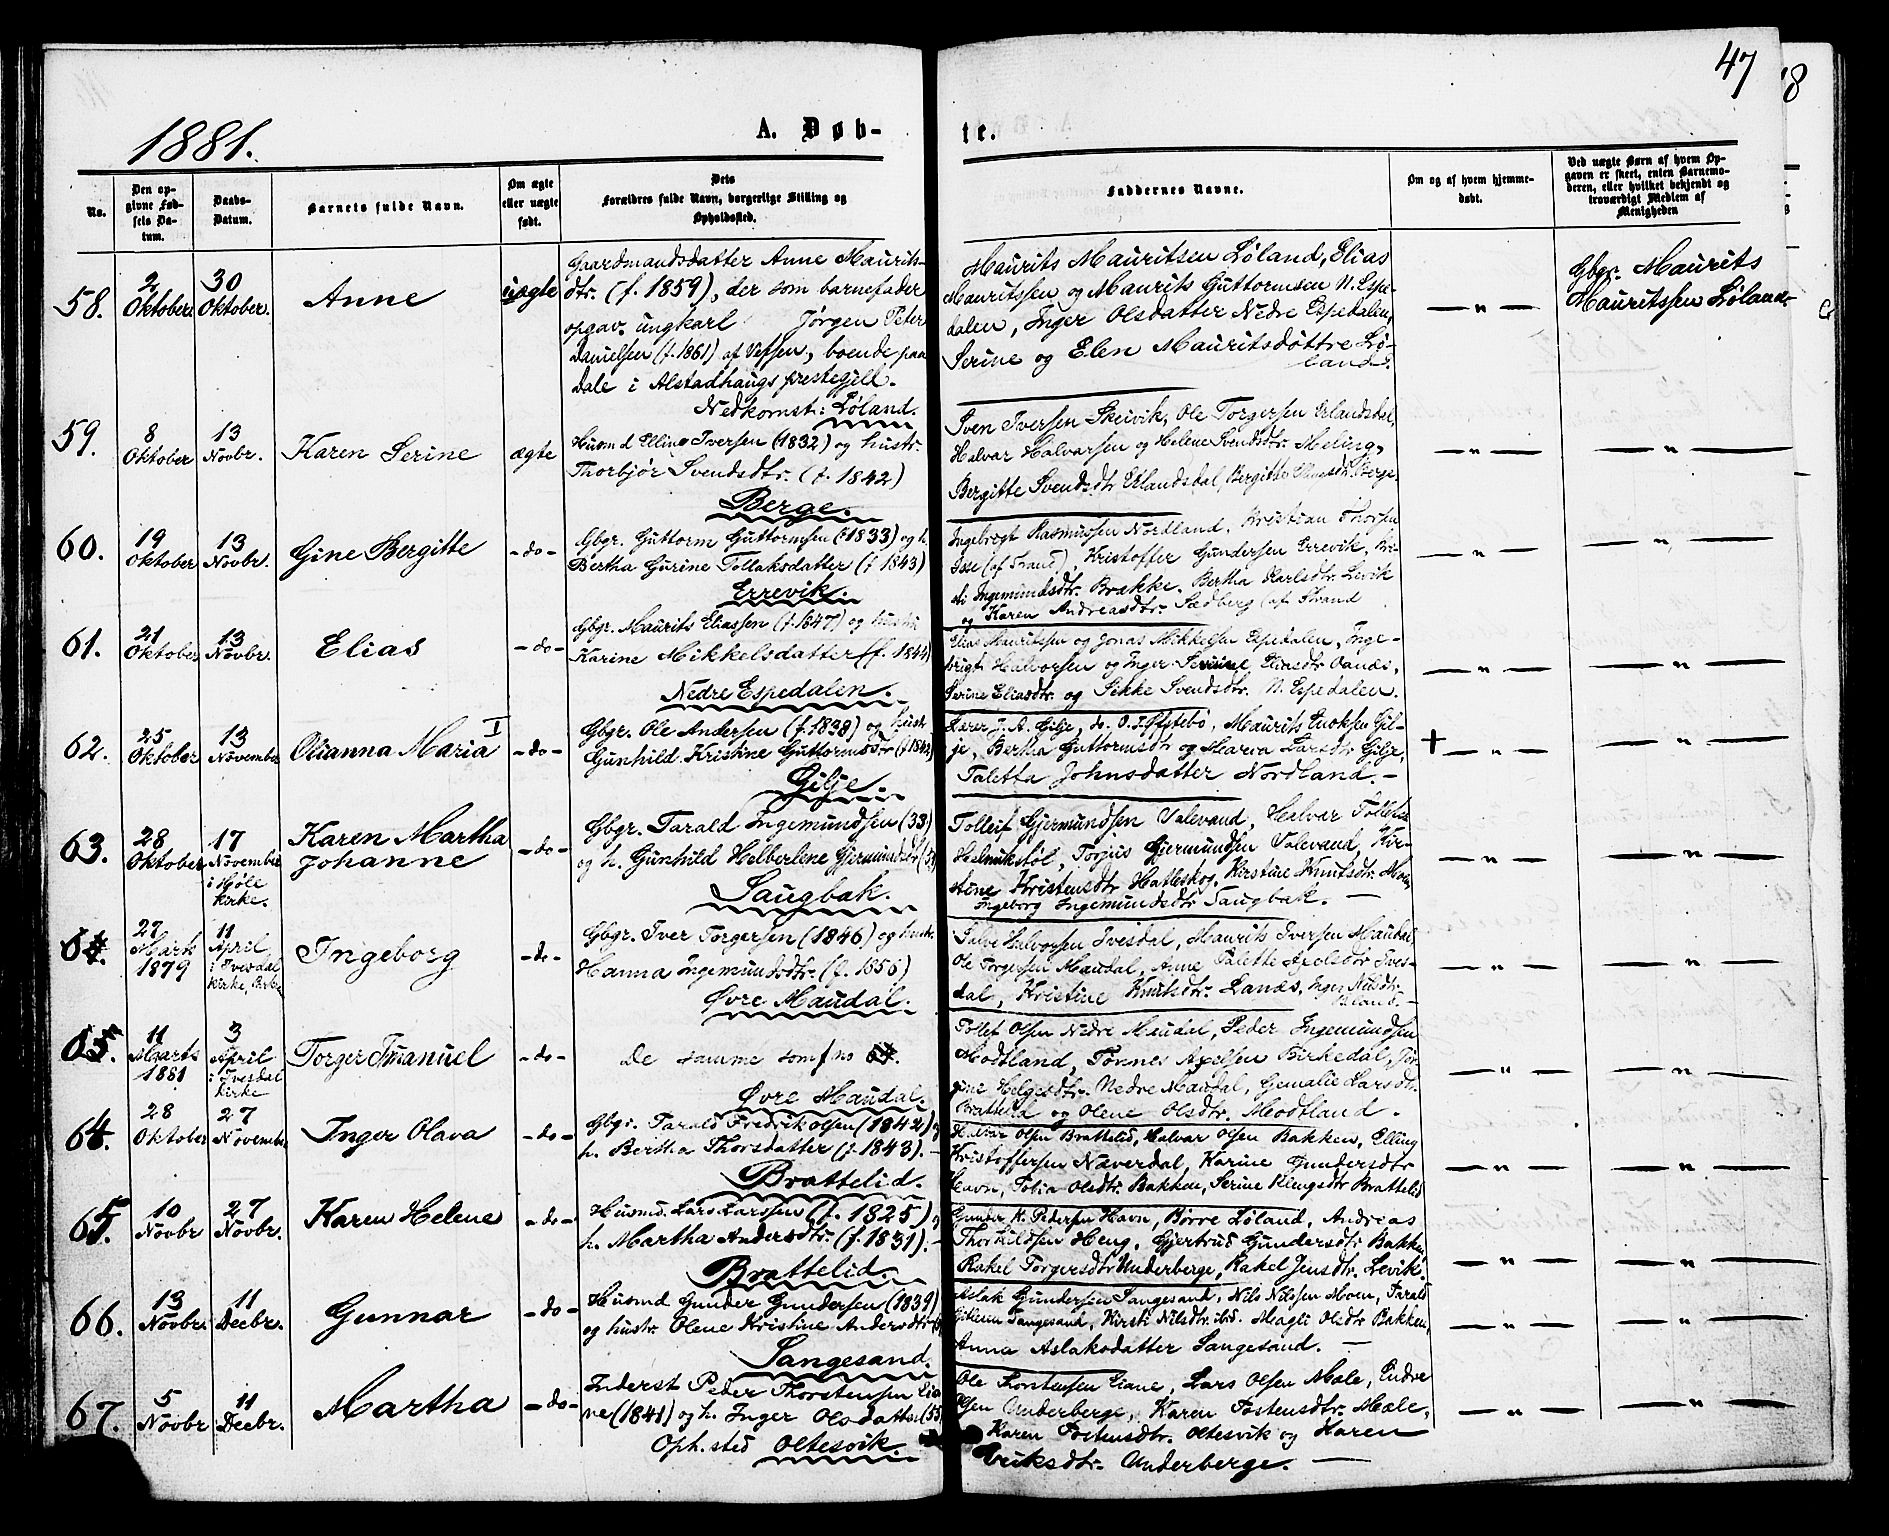 47
48
1881.
A. Døb-
te.
No.
Den op-
givne Fød-
sels Da-
tum.
Daabs-
Datum.
Barnets fulde Navn.
Om ægte
eller uægte
født.
Dets
Forældres fulde Navn, borgerlige Stilling og
Opholdssted.
Faddernes Navne.
Om og af hvem hjemme-
døbt.
Ved uægte Børn af hvem Op-
gaven er skeet, enten Barnemo-
deren, eller hvilket bekjendt og
troværdigt Medlem af
Menigheden
58.
2
Oktober.
30
Oktober.
Anne
uægte
Gaardmandsdatter Anne Maurits-
dtr. (f. 1859), der som barnefader
opgav. ungkarl Jørgen Peter
Danielsen (f. 1861) af Vefsen, boende paa
Dale i Alstadhaugs prestegjeld.
Nedkomst: Løland.
Maurits Mauritsen Løland, Elias
Mauritssen og Maurits Guttormsen N. Espe-
dalen, Inger Olsdatter Nedre Espedalen,
Serine og Elen Mauritsdøttre Lø-
land.
— " —
Gbgr. Maurits
Mauritssen Løland
59.
8
Oktober
13
Novbr.
Karen Serine
ægte
Husmd Elling Iversen (1832) og hustr.
Thorbjør Svendsdtr. (f. 1842)
Berge.
Sven Iversen Skeivik, Ole Torgersen Erlandsdal,
Halvar Halvarsen og Helene Svendsdtr. Meling,
Bergitte Svendsdtr Erlandsdal, Bergitte Berge.
— " —
— " —
60.
19
Oktober
13
Novbr.
Gine Bergitte
- do -
Gbgr. Guttorm Guttormsen (f 1833) og h.
Bertha Gurine Tollaksdatter (f 1843)
Errevik.
Ingebregt Rasmussen Nordland, Kristian Thorsen
(af Strand), Kristoffer Gundersen Errevik, Kri-
sti Ingemundsdtr. Brække. Bertha Karlsdtr. Levik
og Karen Andreasdtr. Sædberg (af Strand
— " —
— " —
61.
21
Oktober
13
Novbr.
Elias
- do -
Gbgr. Maurits Eliassen (f. 1847) og hustr
Karine Mikkelsdatter (f. 1844)
Nedre Espedalen.
Elias Mauritssen og Jonas Mikkelsen Espedalen, Inge-
brigt Halvorsen og Inger Serine Eliasdtr Oanæs,
Serine Eliasdtr. og Sikke Svendsdtr. N. Espedalen.
— " —
— " —
62.
25
Oktober
13
November
Olianna Maria I
- do -
Gbgr. Ole Andersen (f. 1838) og hustr
Gunhild Kristine Guttormsdtr
Gilje.
Lærer J. A. Gilje, do. O. J. Øfstebø, Maurits Enoksen Gil-
je, Bertha Guttormsdtr og Marva Larsdtr Gilje,
Taletta Johnsdatter Nordland. -
+ — " —
— " —
63.
28
Oktober
17
November
i Høle
kirke.
Karen Martha
Johanne
- do -
Gbgr. Tarald Ingemundsen (33)
og h. Gunhild Helberlene Gjermundsdtr
Saugbak.
Tolleif Gjermundsen Valevand, Halvar
Helmikstøl, Torjus Gjermundsen Valevand, Kir-
stine Kristensdtr Hatleskog, Kirstine Knutsdtr. Moen
Ingeborg Ingemundsdtr Saugbak. —
— " —
— " —
64.
27
Marts
1879
11
April
i Ivesdal
kirke,
Ingeborg
- do -
Gbgr. Iver Torgersen (1846) og hustr.
Hanna Ingemundsdtr. (f. 1856)
Øvre Maudal.
Salve Halvorsen Ivesdal, Maurits Iversen Maudal
Ole Torgersen Maudal, Anne Talette Axelsdtr Ives-
dal, Kristine Knutsdtr. Lanæs, Inger Nilsdtr.
— " —
— " —
65.
11
Marts
1881
3
April
i Ivesdal
kirke
Torger Imanuel
- do -
De samme som no 64.
Øvre Maudal.
Tollef Olsen Nedre Maudal, Peder Ingemundsen
Modtland, Tønnes Axelsen Birkedal, Jør-
gine Helgesdtr. Nedre Maudal, Gemalie Larsdtr.
Brattelid og Olene Olsdtr. Modtland.
— " —
— " —
64.
28
Oktober
27
November
Inger Olava
- do -
Gbgr. Tarald Fredrik Olsen (1842) og
h. Bertha Thorsdatter (f. 1843). —
Brattelid.
Halvar Olsen Brattelid, Halvar Olsen Bakken, Elling
Kristoffersen Næverdal, Karine Gundersdtr
Havn, Tobia Olsdtr. Bakken, Serine Brattelid
— " —
— " —
65.
10
Novbr
27
Novbr.
Karen Helene
- do -
Husmd. Lars Larssen (f. 1825) og
h. Martha Andersdtr. (f. 1831). -
Brattelid.
Gunder K. Pedersen Havn, Børre Løland, Andreas
Thorkildsen Heng, Gjertrud Gundersdtr Bakken
Rakel Torgersdtr Underberge, Rakel Jensdtr. Levik.
— " —
— " —
66.
13
Novbr.
11
Decbr.
Gunnar
- do -
Husmd Gunder Gundersen (1839)
og hustr. Olene Kristine Andersdtr
Sangesand.
Aslak Gundersen Sangesand, Nils Nilssen Moen, Tarald
Sangesand, Kirsti Nilsdtr. ibid. Magli Olsdtr Bakken,
Anna Aslaksdatter Sangesand. —
— " —
— " —
67.
5
Novbr
11
Decbr.
Martha
- do -
Inderst Peder Thorstensen Lia-
ne (1841) og h. Inger Olsdatter (55)
Oph.sted Oltesvik.
Ole Thorstensen Liane, Lars Olsen Mæle, Endre
Olsen Underberge, Karen Tostensdtr. Mæle,
Karen Tostensdtr. Oltesvik og Karen
Eriksdtr. Underberge. —
— " —
— " —